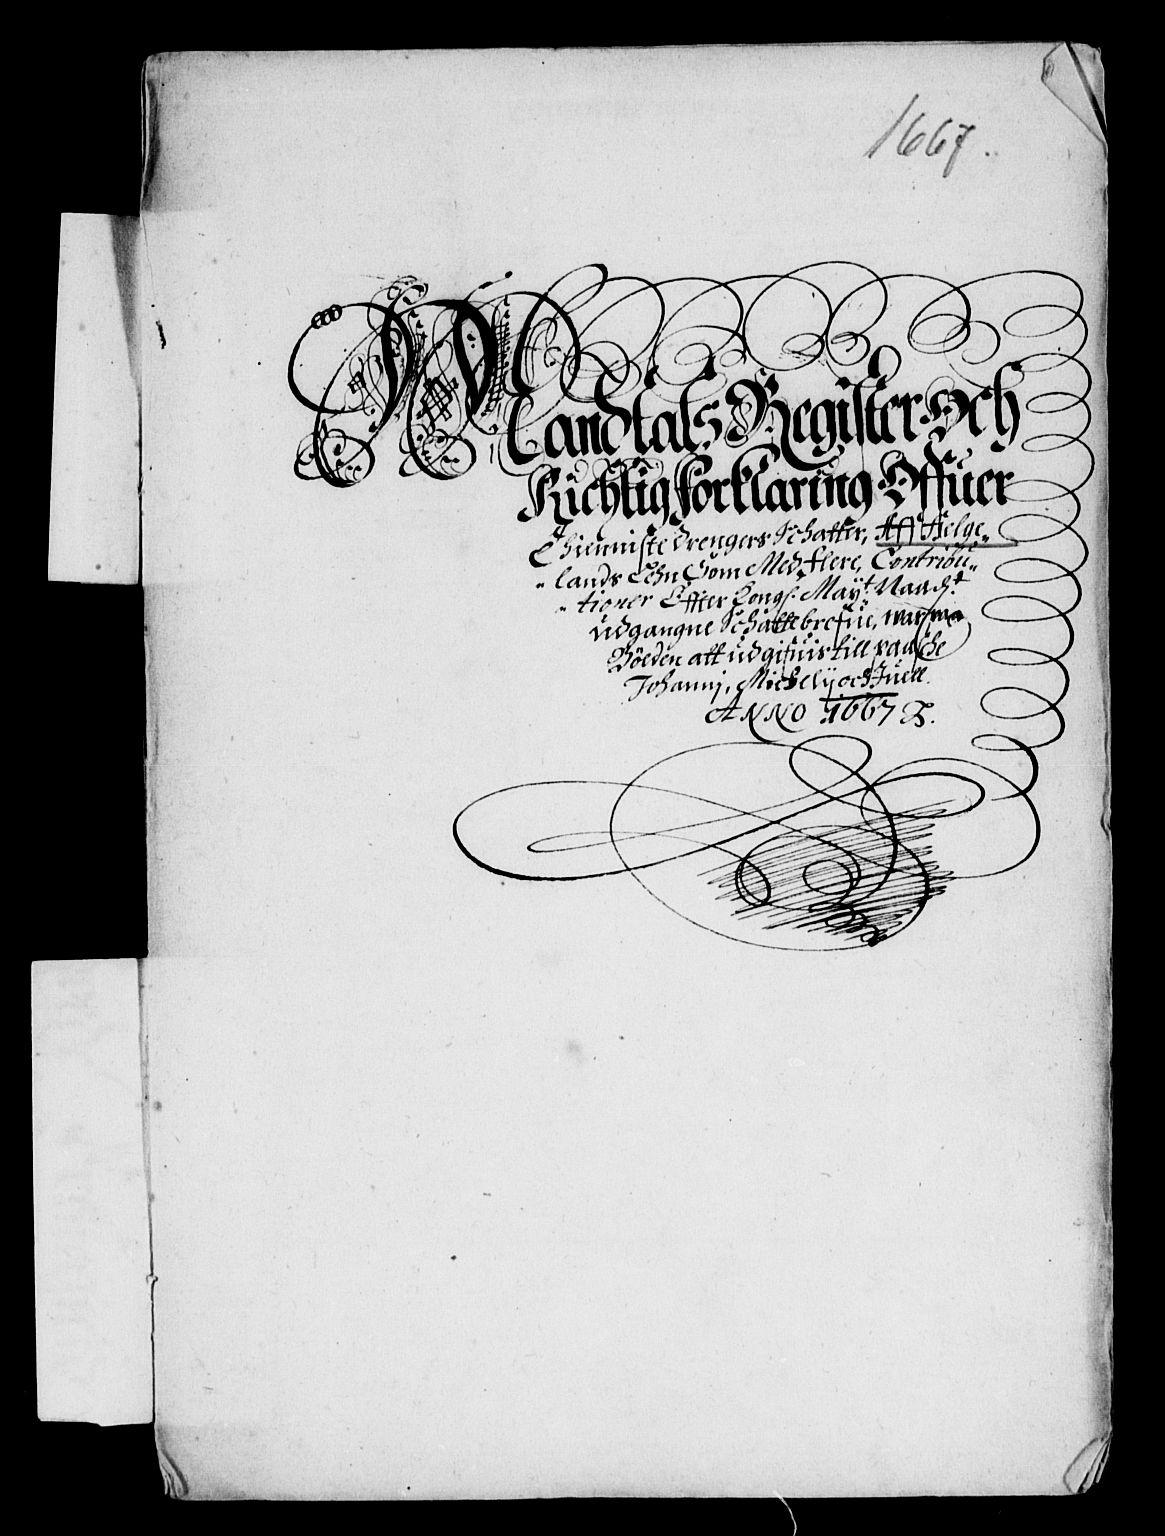 1667.
Mandtals Register Och
Richtig forklaring Offuer
Thienniste drengers Schatter, Aff Helge„
„lands Lehn Som Med flere, Contribu„
„tioner Effter Kongl: Mayt: Naadst
udgangne Schattebrefue,
Böeden att udgifuis till paasche
Johannj, Michelij och Juell.
ANNO 1667